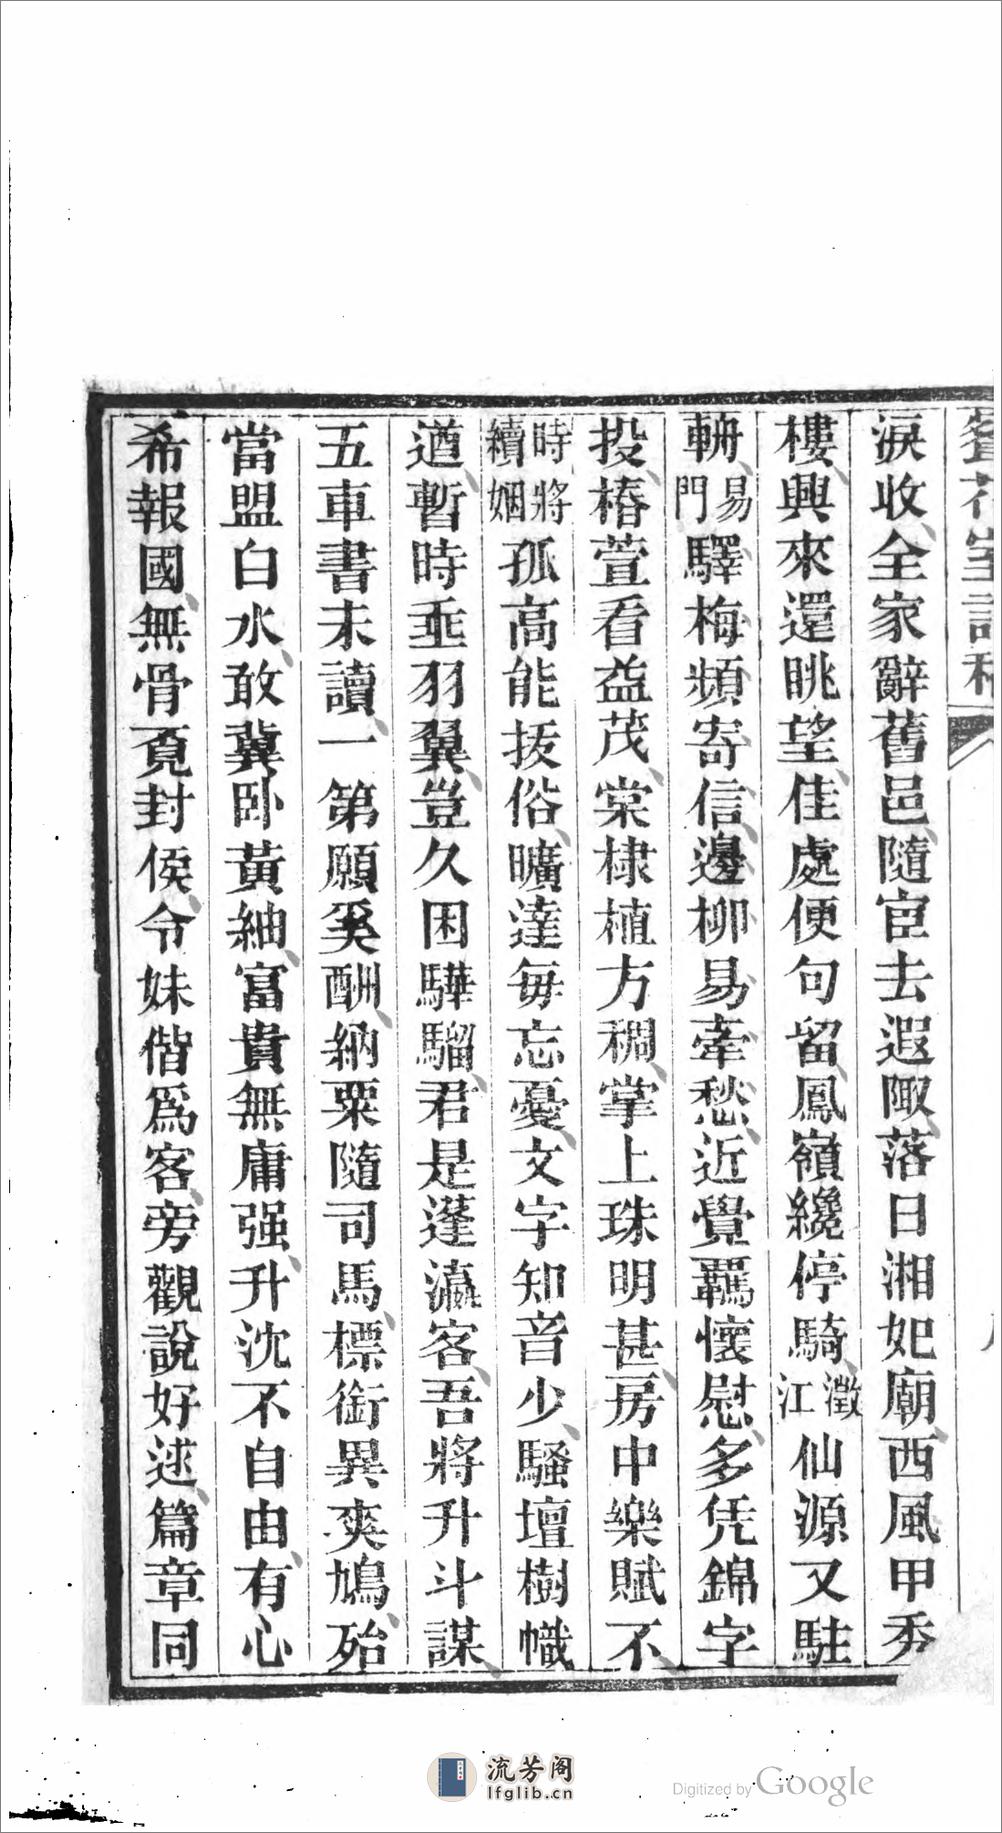 淚收全家辭舊邑隨宦去遐陬落日湘妃廟西風甲秀
樓興來還眺望佳處便句留鳳嶺纔停騎澂江仙源又駐
輈易門驛梅頻寄信邊柳易牽愁近覺羈懷慰多凭錦字
投椿萱看益茂棠棣植方稠掌上珠明甚房中樂賦不
時將續姻孤高能拔俗曠達每忘憂文字知音少騷壇樹幟
遒暫時垂羽翼豈久困驊騮君是蓬瀛客吾將升斗謀
五車書未讀一第願奚酬納粟隨司馬標銜異爽鳩殆
當盟白水敢冀卧黃紬富貴無庸强升沈不自由有心
希報國無骨覓封侯令妹偕爲客旁觀說好逑篇章同
流芳阁
lfglib.cn
Digitized by Google